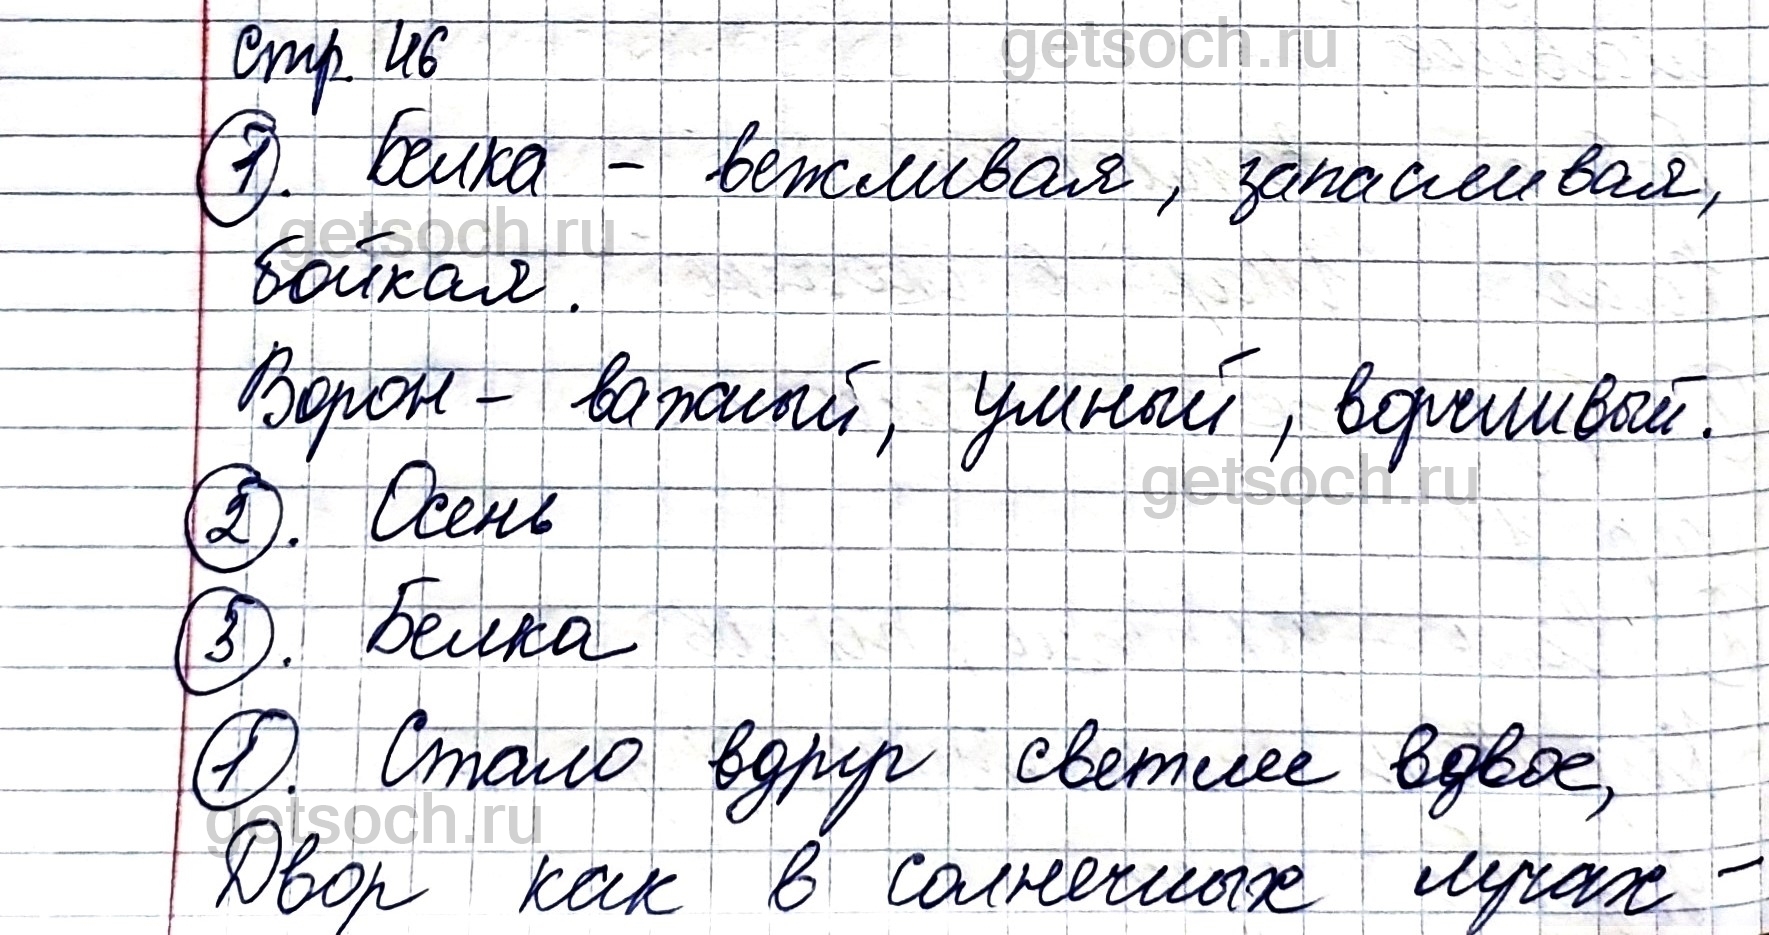 стр. 46
getsoch.ru
1. Белка - вежливая, запасливая,
getsoch.ru
бойкая.
Ворон - важный, умный, ворчливый.
getsoch.ru
2. Осень
3. Белка
1. Стало вдруг светлее вдвое,
getsoch.ru
Двор как в солнечных лучах -